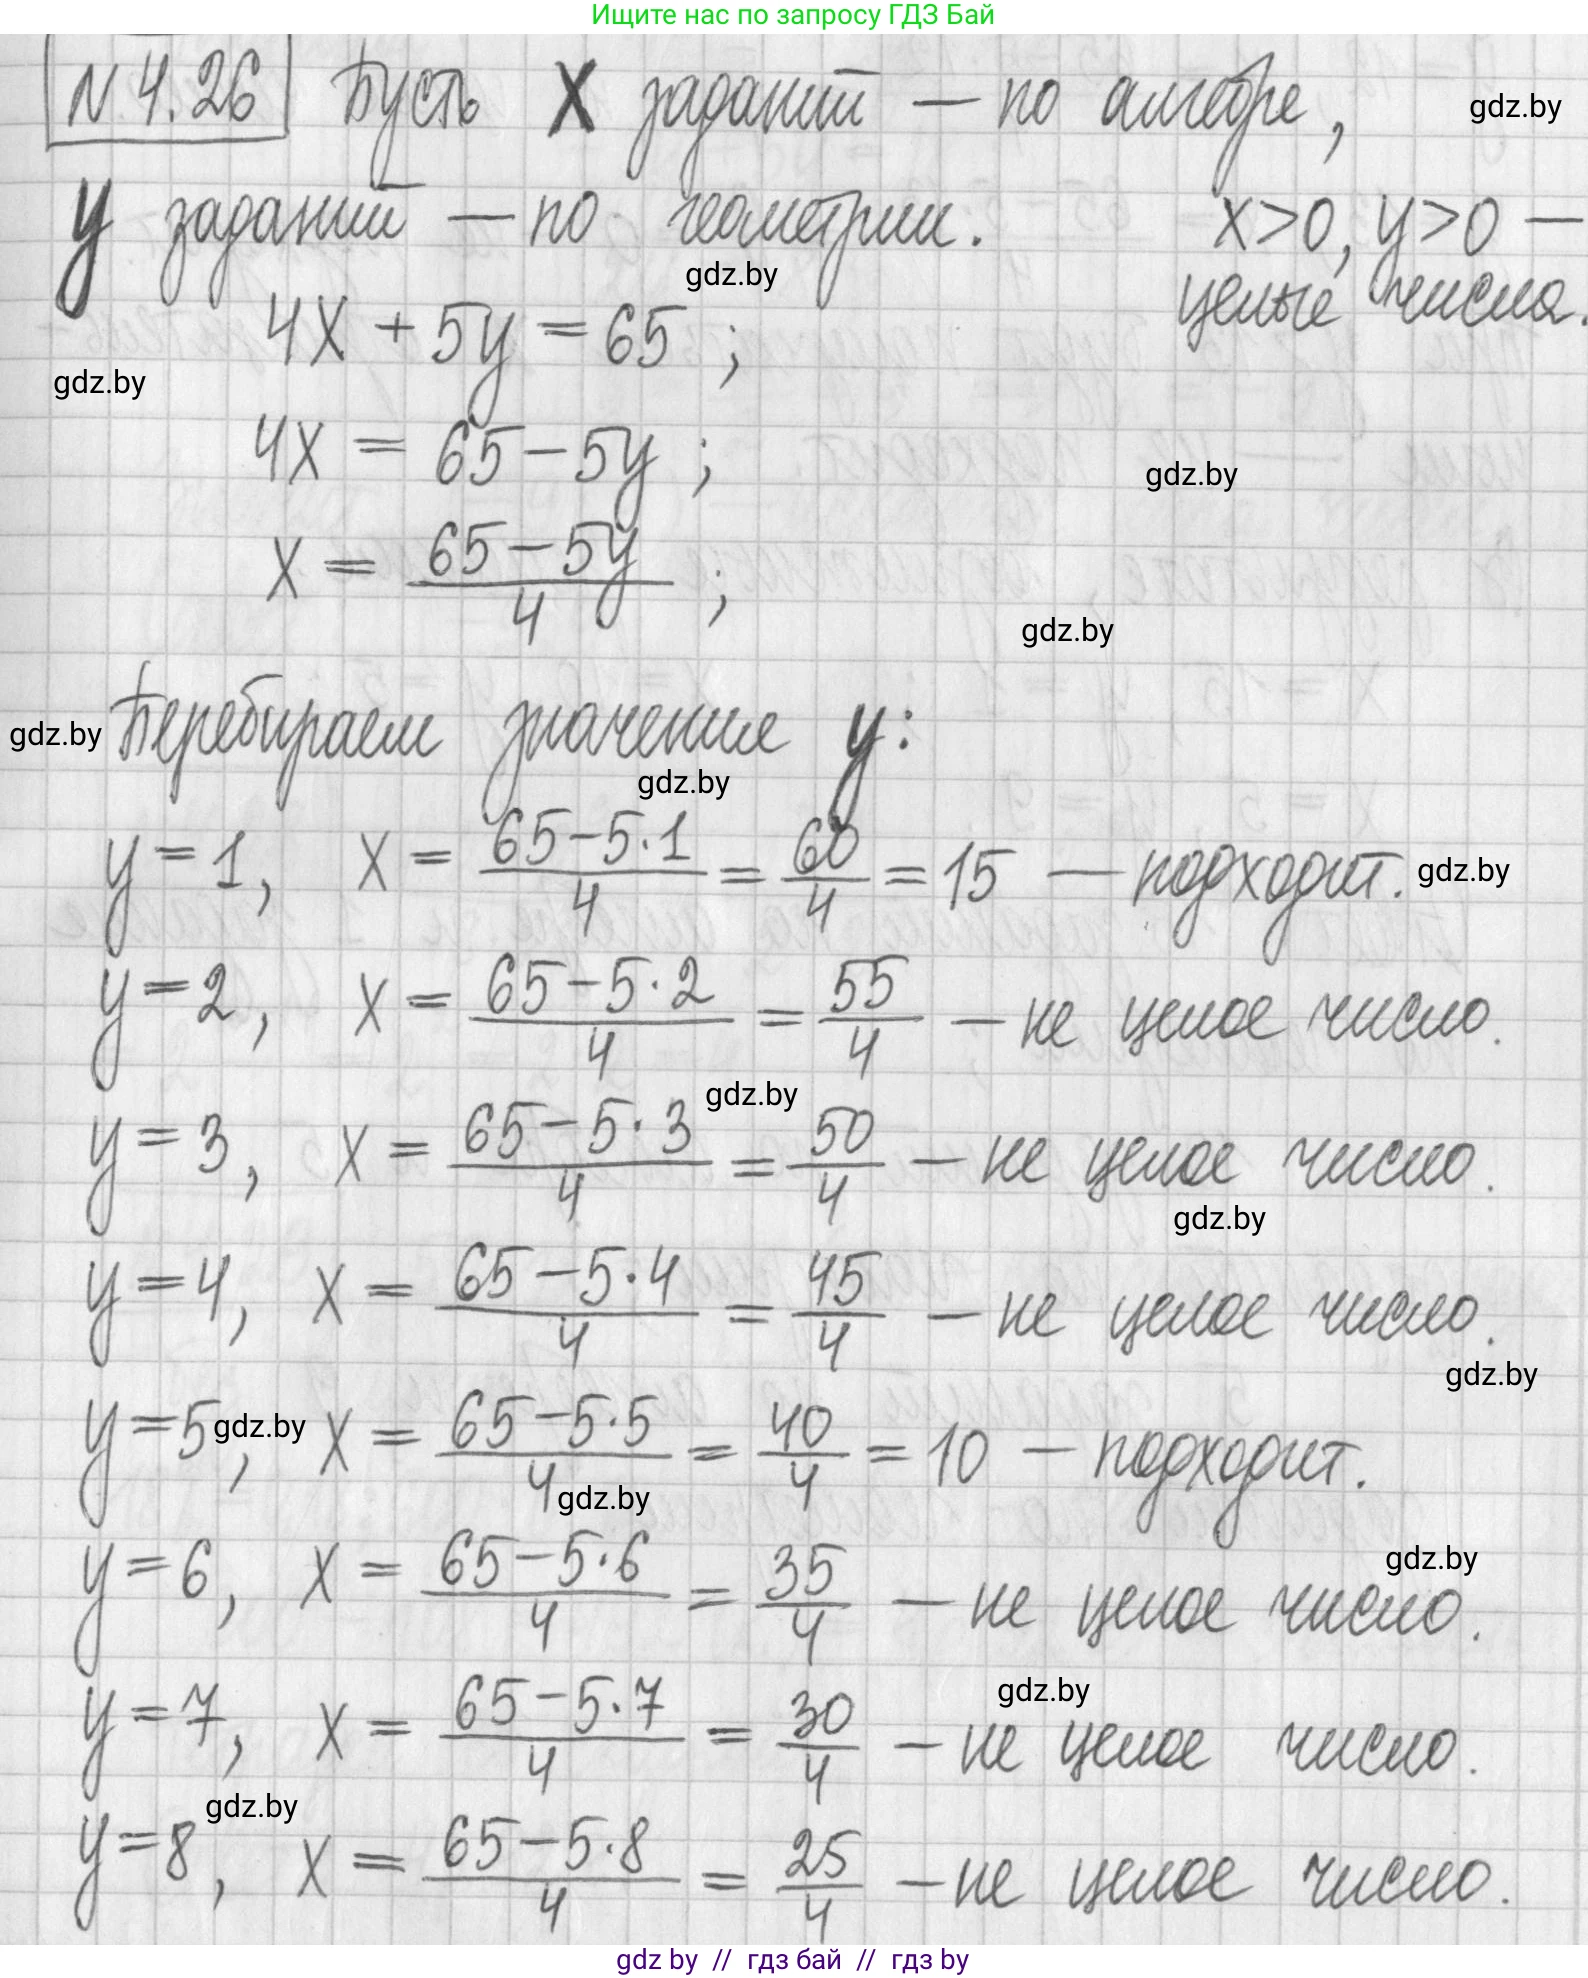 Ищите нас по запросу ГДЗ Бай
N 4.26 Пусть X заданий — по алгебре, gdz.by
y заданий — по геометрии. x>0, y>0 —
целые числа.
gdz.by
4x + 5y = 65 ;
gdz.by
4x = 65 - 5y ;
gdz.by
x = (65 - 5y)/4 ;
gdz.by
gdz.by Перебираем значения y:
gdz.by
y = 1, x = (65 - 5·1)/4 = 60/4 = 15 — подходит. gdz.by
y = 2, x = (65 - 5·2)/4 = 55/4 — не целое число.
gdz.by
y = 3, x = (65 - 5·3)/4 = 50/4 — не целое число.
gdz.by
y = 4, x = (65 - 5·4)/4 = 45/4 — не целое число.
gdz.by
y = 5, gdz.by x = (65 - 5·5)/4 = 40/4 = 10 — подходит.
gdz.by
gdz.by
y = 6, x = (65 - 5·6)/4 = 35/4 — не целое число.
gdz.by
y = 7, x = (65 - 5·7)/4 = 30/4 — не целое число.
gdz.by
y = 8, x = (65 - 5·8)/4 = 25/4 — не целое число.
gdz by // гдз бай // гдз by